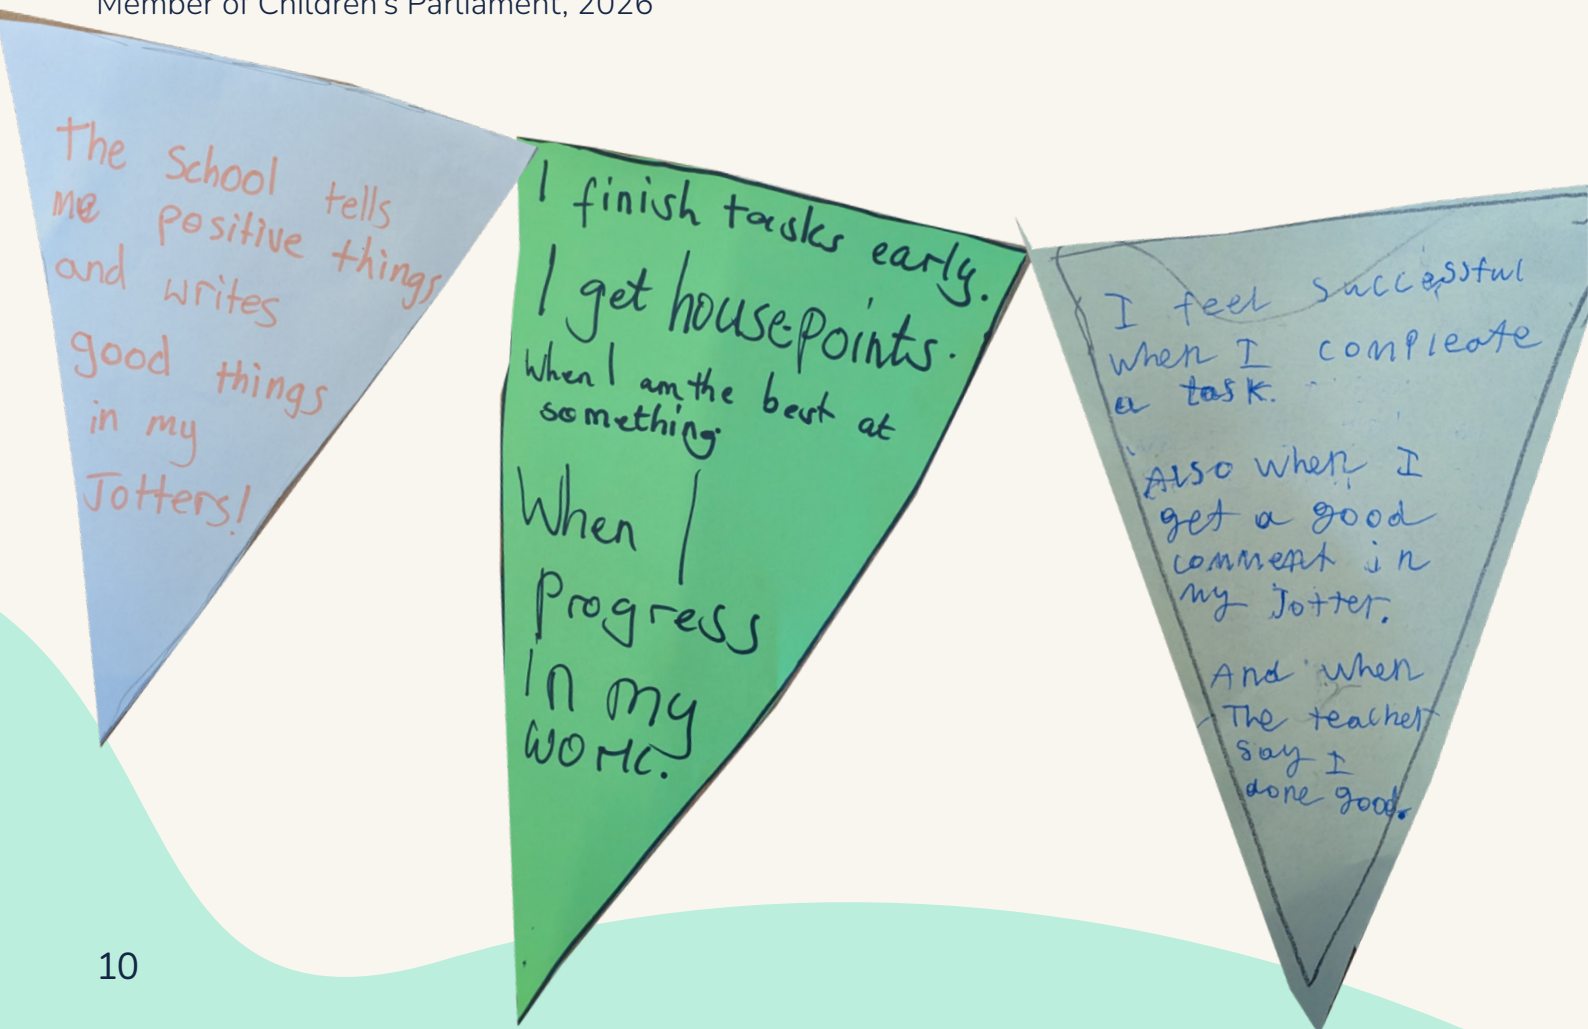 Member of Children's Parliament, 2026
The School tells
me positive things
and writes
good things
in my
Jotters!
I finish tasks early.
I get housepoints.
When I am the best at
something
When I
Progress
in my
work.
I feel successful
when I compleate
a task.
Also when I
get a good
comment in
my Jotter.
And when
The teacher
say I
done good.
10